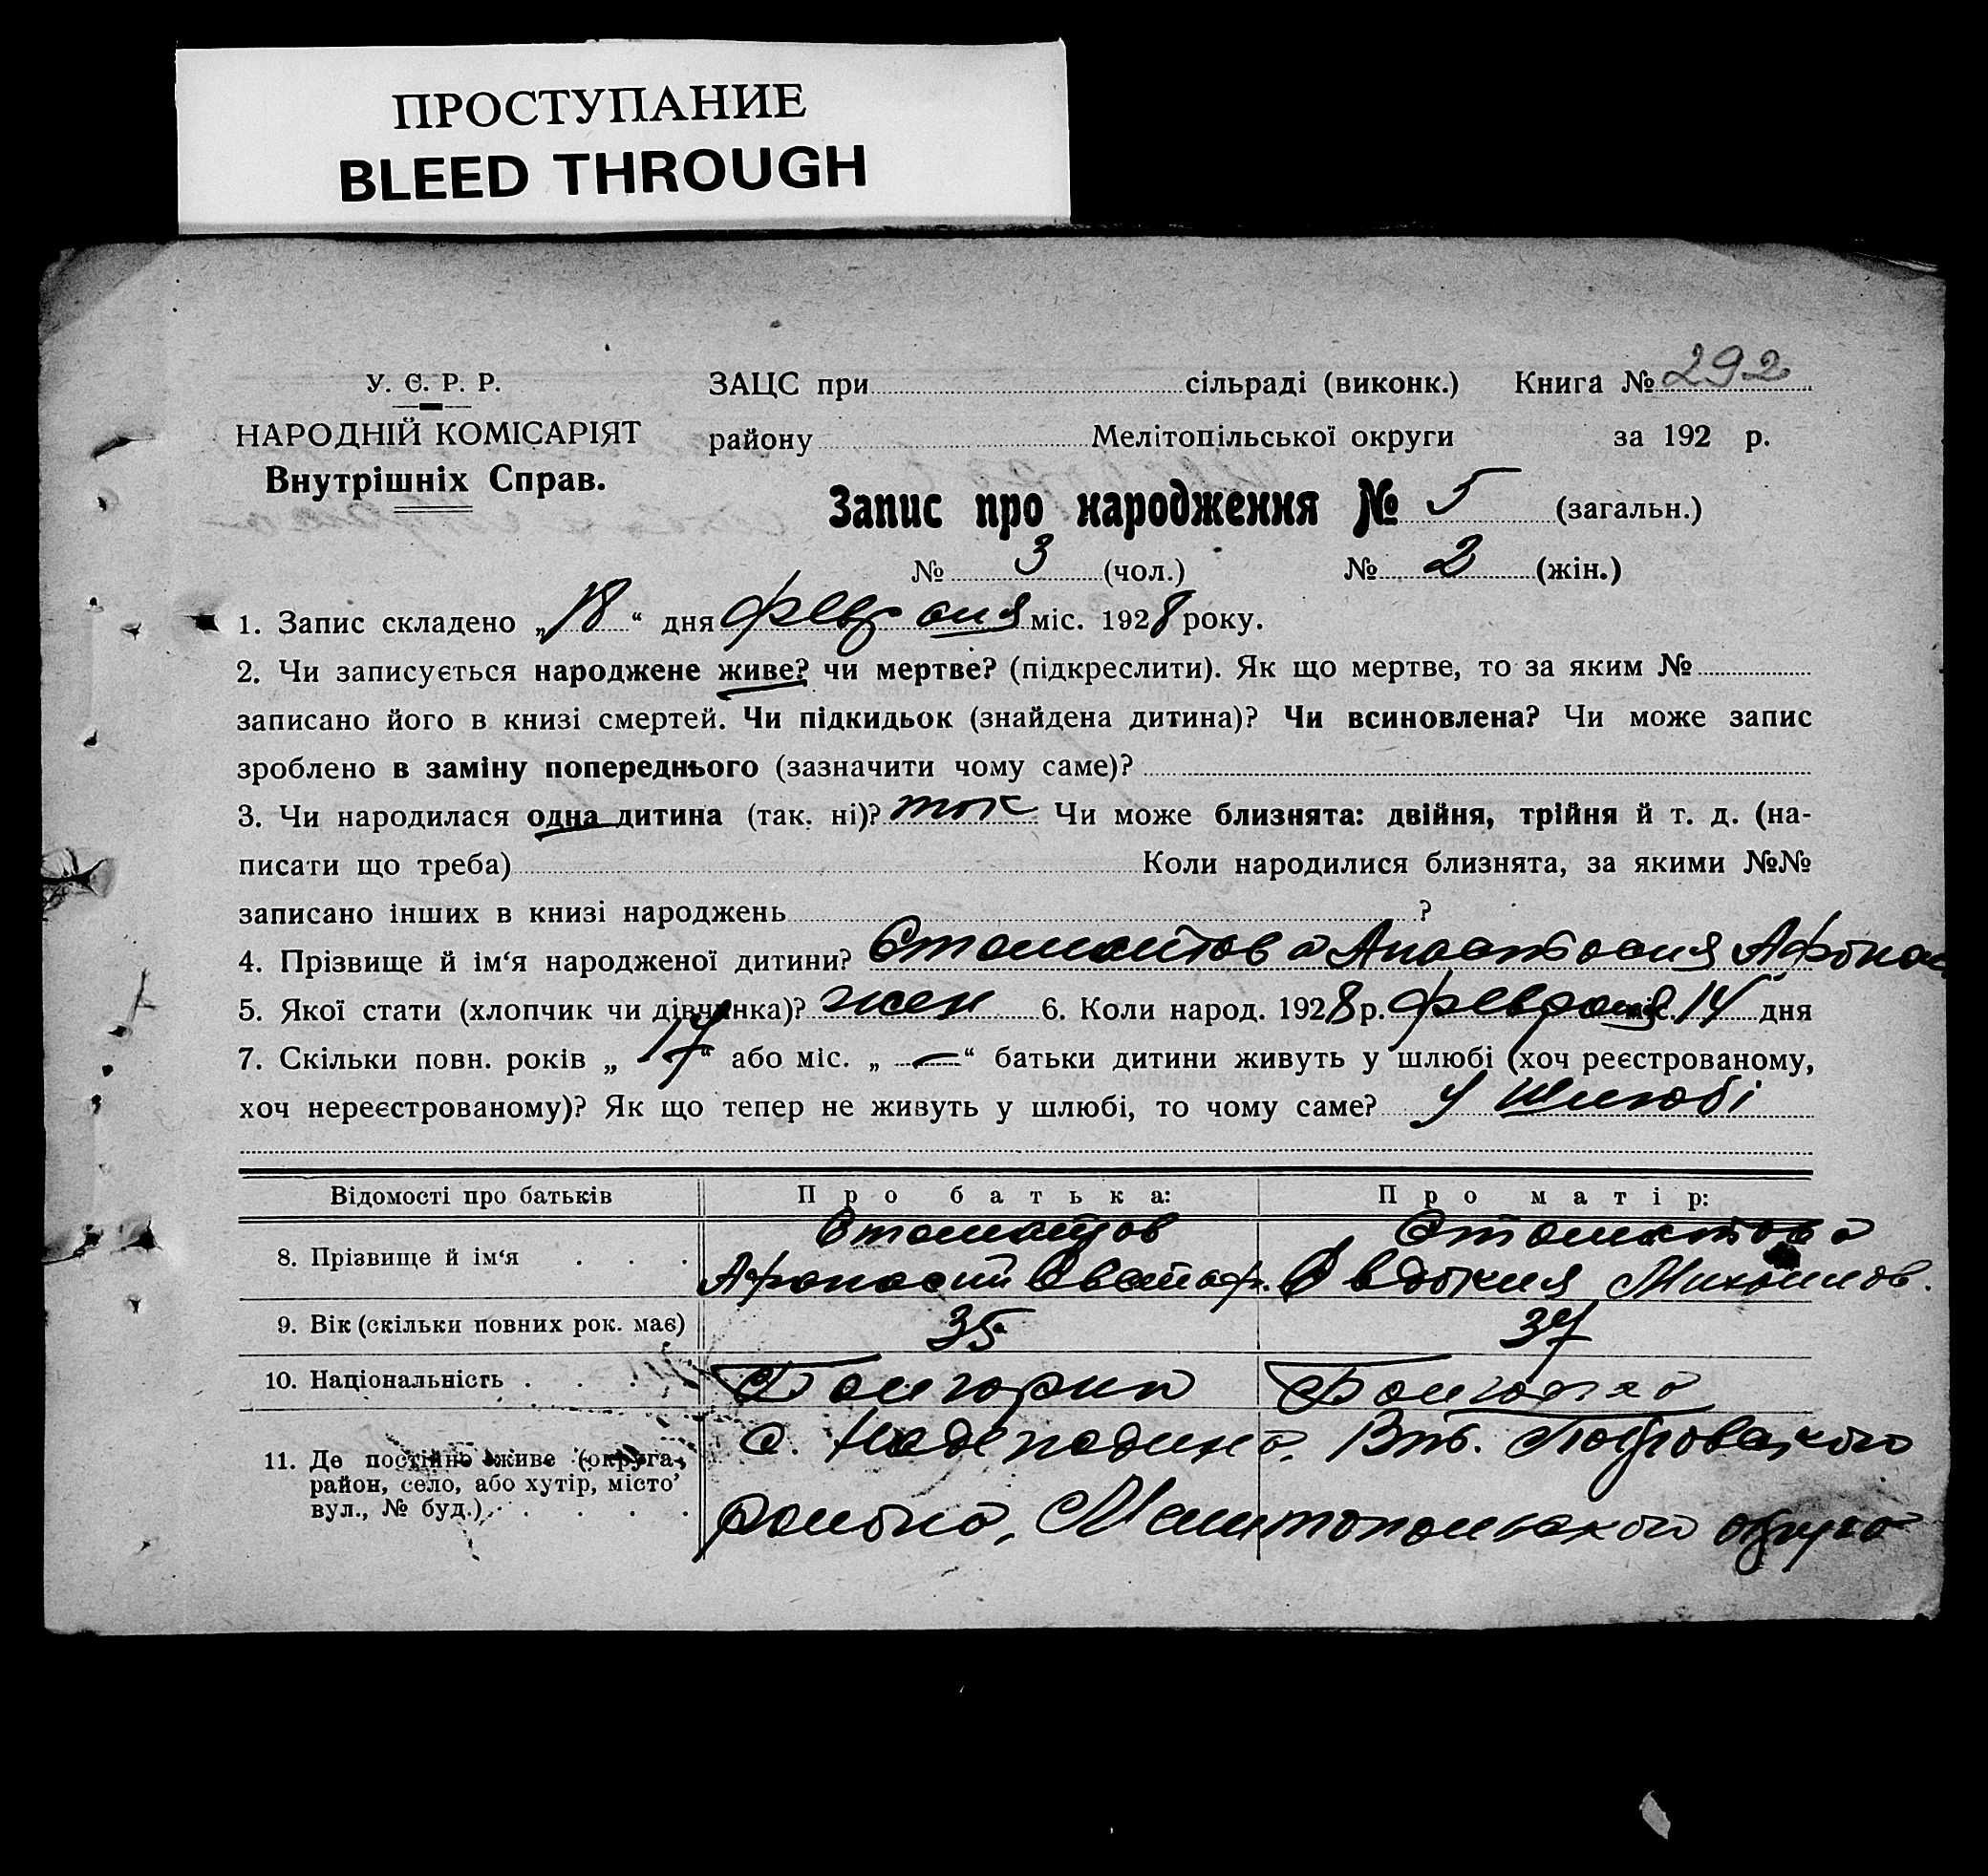 ПРОСТУПАНИЕ
BLEED THROUGH
У. С. Р. Р.
НАРОДНІЙ КОМІСАРІЯТ
Внутрішніх Справ.
ЗАЦС при сільраді (виконк.) Книга № 292
району Мелітопільської округи за 192 р.
Запис про народження № 5 (загальн.)
№ 3 (чол.) № 2 (жін.)
1. Запис складено „18“ дня февраля міс. 1928 року.
2. Чи записується народжене живе? чи мертве? (підкреслити). Як що мертве, то за яким №
записано його в книзі смертей. Чи підкидьок (знайдена дитина)? Чи всиновлена? Чи може запис
зроблено в заміну попереднього (зазначити чому саме)?
3. Чи народилася одна дитина (так. ні)? так Чи може близнята: двійня, трійня й т. д. (на-
писати що треба) Коли народилися близнята, за якими №№
записано інших в книзі народжень ?
4. Прізвище й ім‘я народженої дитини? Стаматова Анастасия Афонас
5. Якої стати (хлопчик чи дівчинка)? жен 6. Коли народ. 1928 р. февраля міс. 14 дня
7. Скільки повн. років „17“ або міс. „—“ батьки дитини живуть у шлюбі (хоч реєстрованому,
хоч нереєстрованому)? Як що тепер не живуть у шлюбі, то чому саме? у шлюбі
Відомості про батьків Про батька: Про матір:
8. Прізвище й ім‘я . . .
Афонасий Овдокия Михаилов.
9. Вік (скільки повних рок. має) 35 37
10. Національність . . . . Болгарин Болгарка
11. Де постійно живе (округа, район, село, або хутір, місто вул., № буд.) . . . .
с.
района, Мелитопольского округа